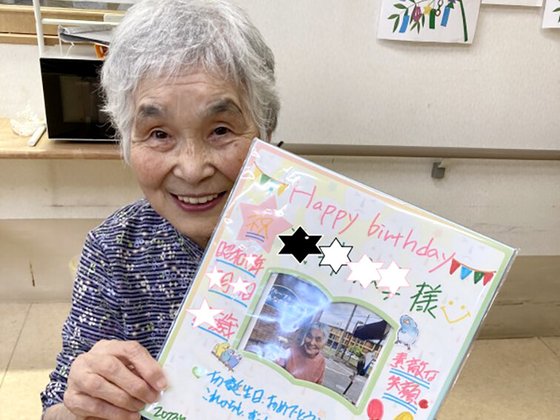 Happy birthday
祝
様
昭和
年
月
日
歳
素敵な
笑顔
お誕生日、おめでとう
これからも